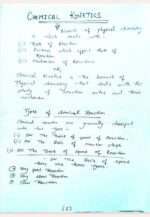 CHEMICAL KINETICS
Branch of physical chemistry
which deals with :-
(i) Rate of Reaction
(ii) Factors which affect Rate of
Reaction
(iii) Mechanism of Reaction
OR
Chemical Kinetics is the branch of
Physical chemistry that deals with the
study of Reaction rates and their
mechanism
Types of chemical Reaction
Chemical reactions are generally classified
into two types :-
(i) On the Basis of speed of reaction
(ii) On the Basis of reaction
(i) On The Basis of speed of Reaction
On the Basis of speed
they are three types
Very fast Reaction
Very slow Reaction
Slow Reaction